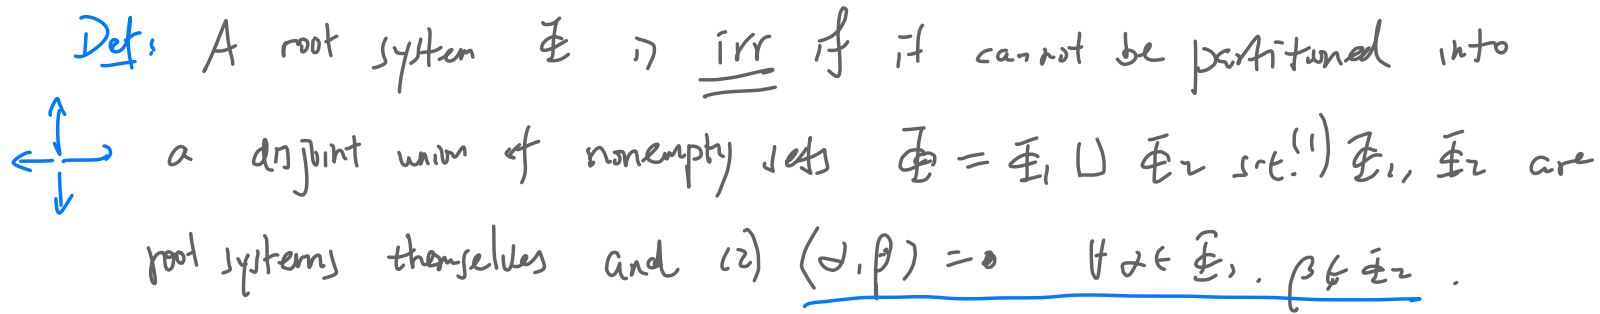 Def: A root system Φ is irr if it cannot be partitioned into
a disjoint union of nonempty sets Φ = Φ₁ ⊔ Φ₂ s.t. (1) Φ₁, Φ₂ are
root systems themselves and (2) (α, β) = 0 ∀ α ∈ Φ₁, β ∈ Φ₂.